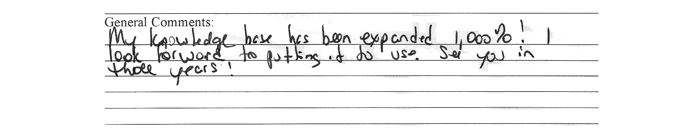 General Comments:
My knowledge base has been expanded 1,000%! I
look forward to putting it to use. See you in
three years!